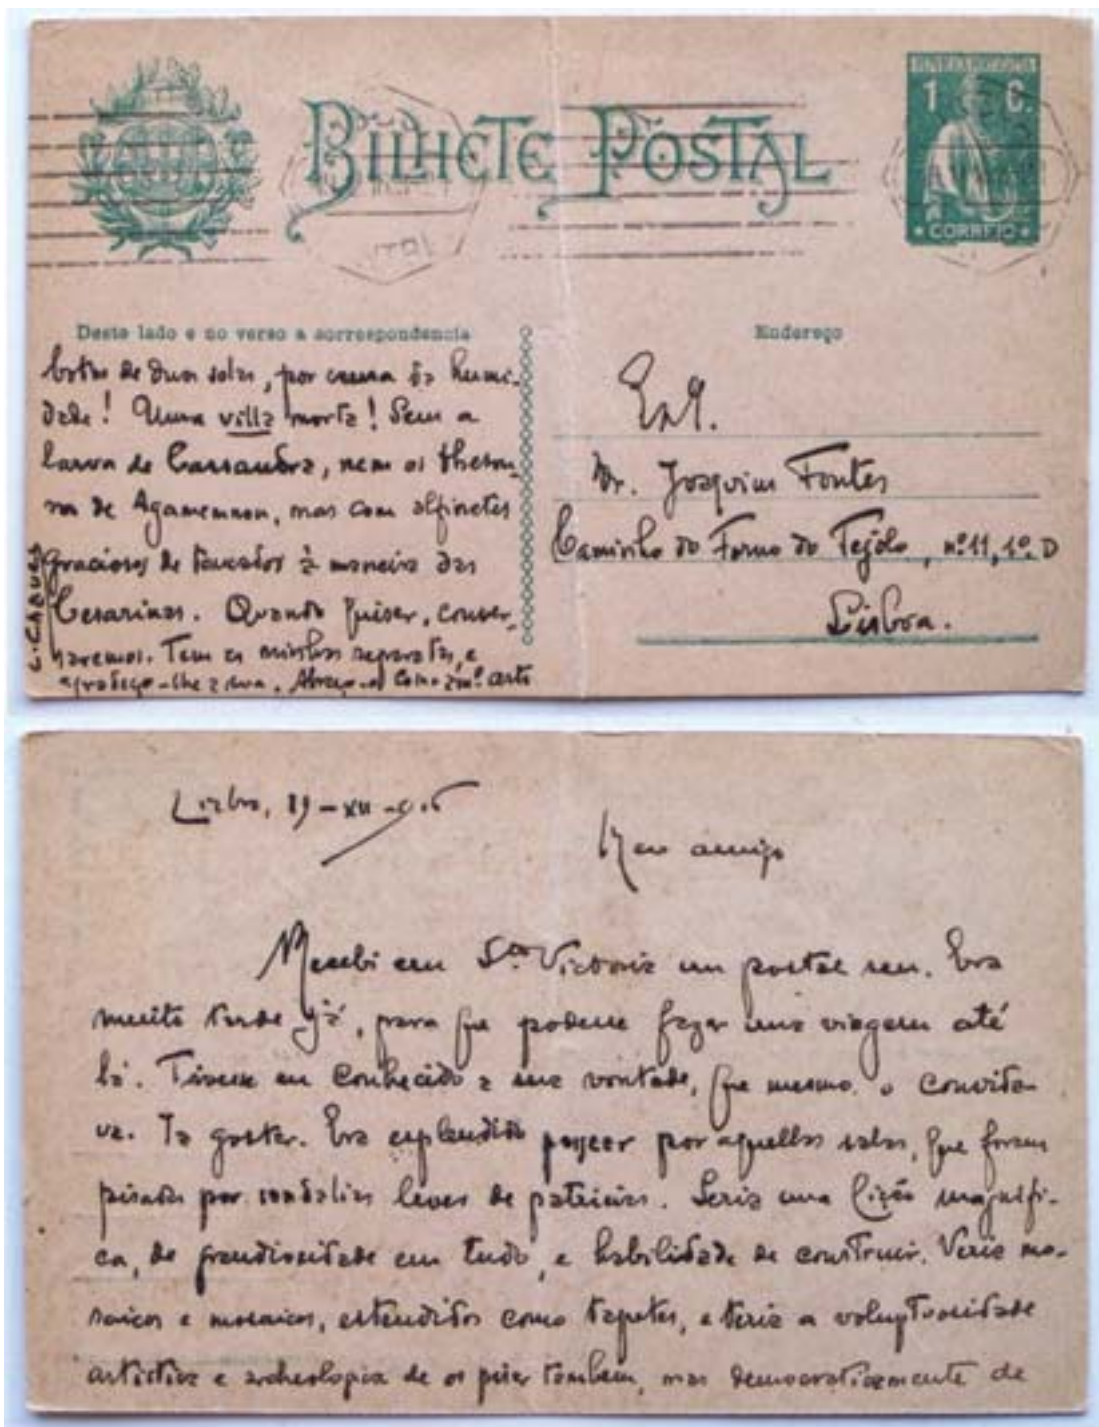 BILHETE POSTAL
1 C.
CORREIO
Deste lado e no verso a correspondencia
Endereço
botas de duas solas, por causa da humi-
dade! Uma villa morta! Sem a
larva de Cassandra, nem os thesou-
ros de Agamemnon, mas com alfinetes
graciosos de toucador à maneira das
Cesarinas. Quando quiser, conver-
saremos. Tem as minhas separatas, e
agradeço-lhe a sua. Abraço-o como
Dr. Joaquim Fontes
Caminho do Forno do Tejolo, nº 11, 1º. D
Lisboa.
Lisboa, 19-XII-
Meu amigo
Recebi em Sta. Victoria um postal seu. Era
muito tarde já, para que podesse fazer uma viagem até
lá. Tivesse eu conhecido a sua vontade, que mesmo o convida-
va. Ia gostar. Era esplendido passear por aquellas salas, que foram
pisadas por sandalias leves de patricias. Seria uma lição magnifi-
ca, de grandiosidade em tudo, e habilidade de construir. Veria mo-
saicos e mosaicos, estendidos como tapetes, e teria a voluptuosidade
artistica e archeologica de os pisar tambem, mas democraticamente de